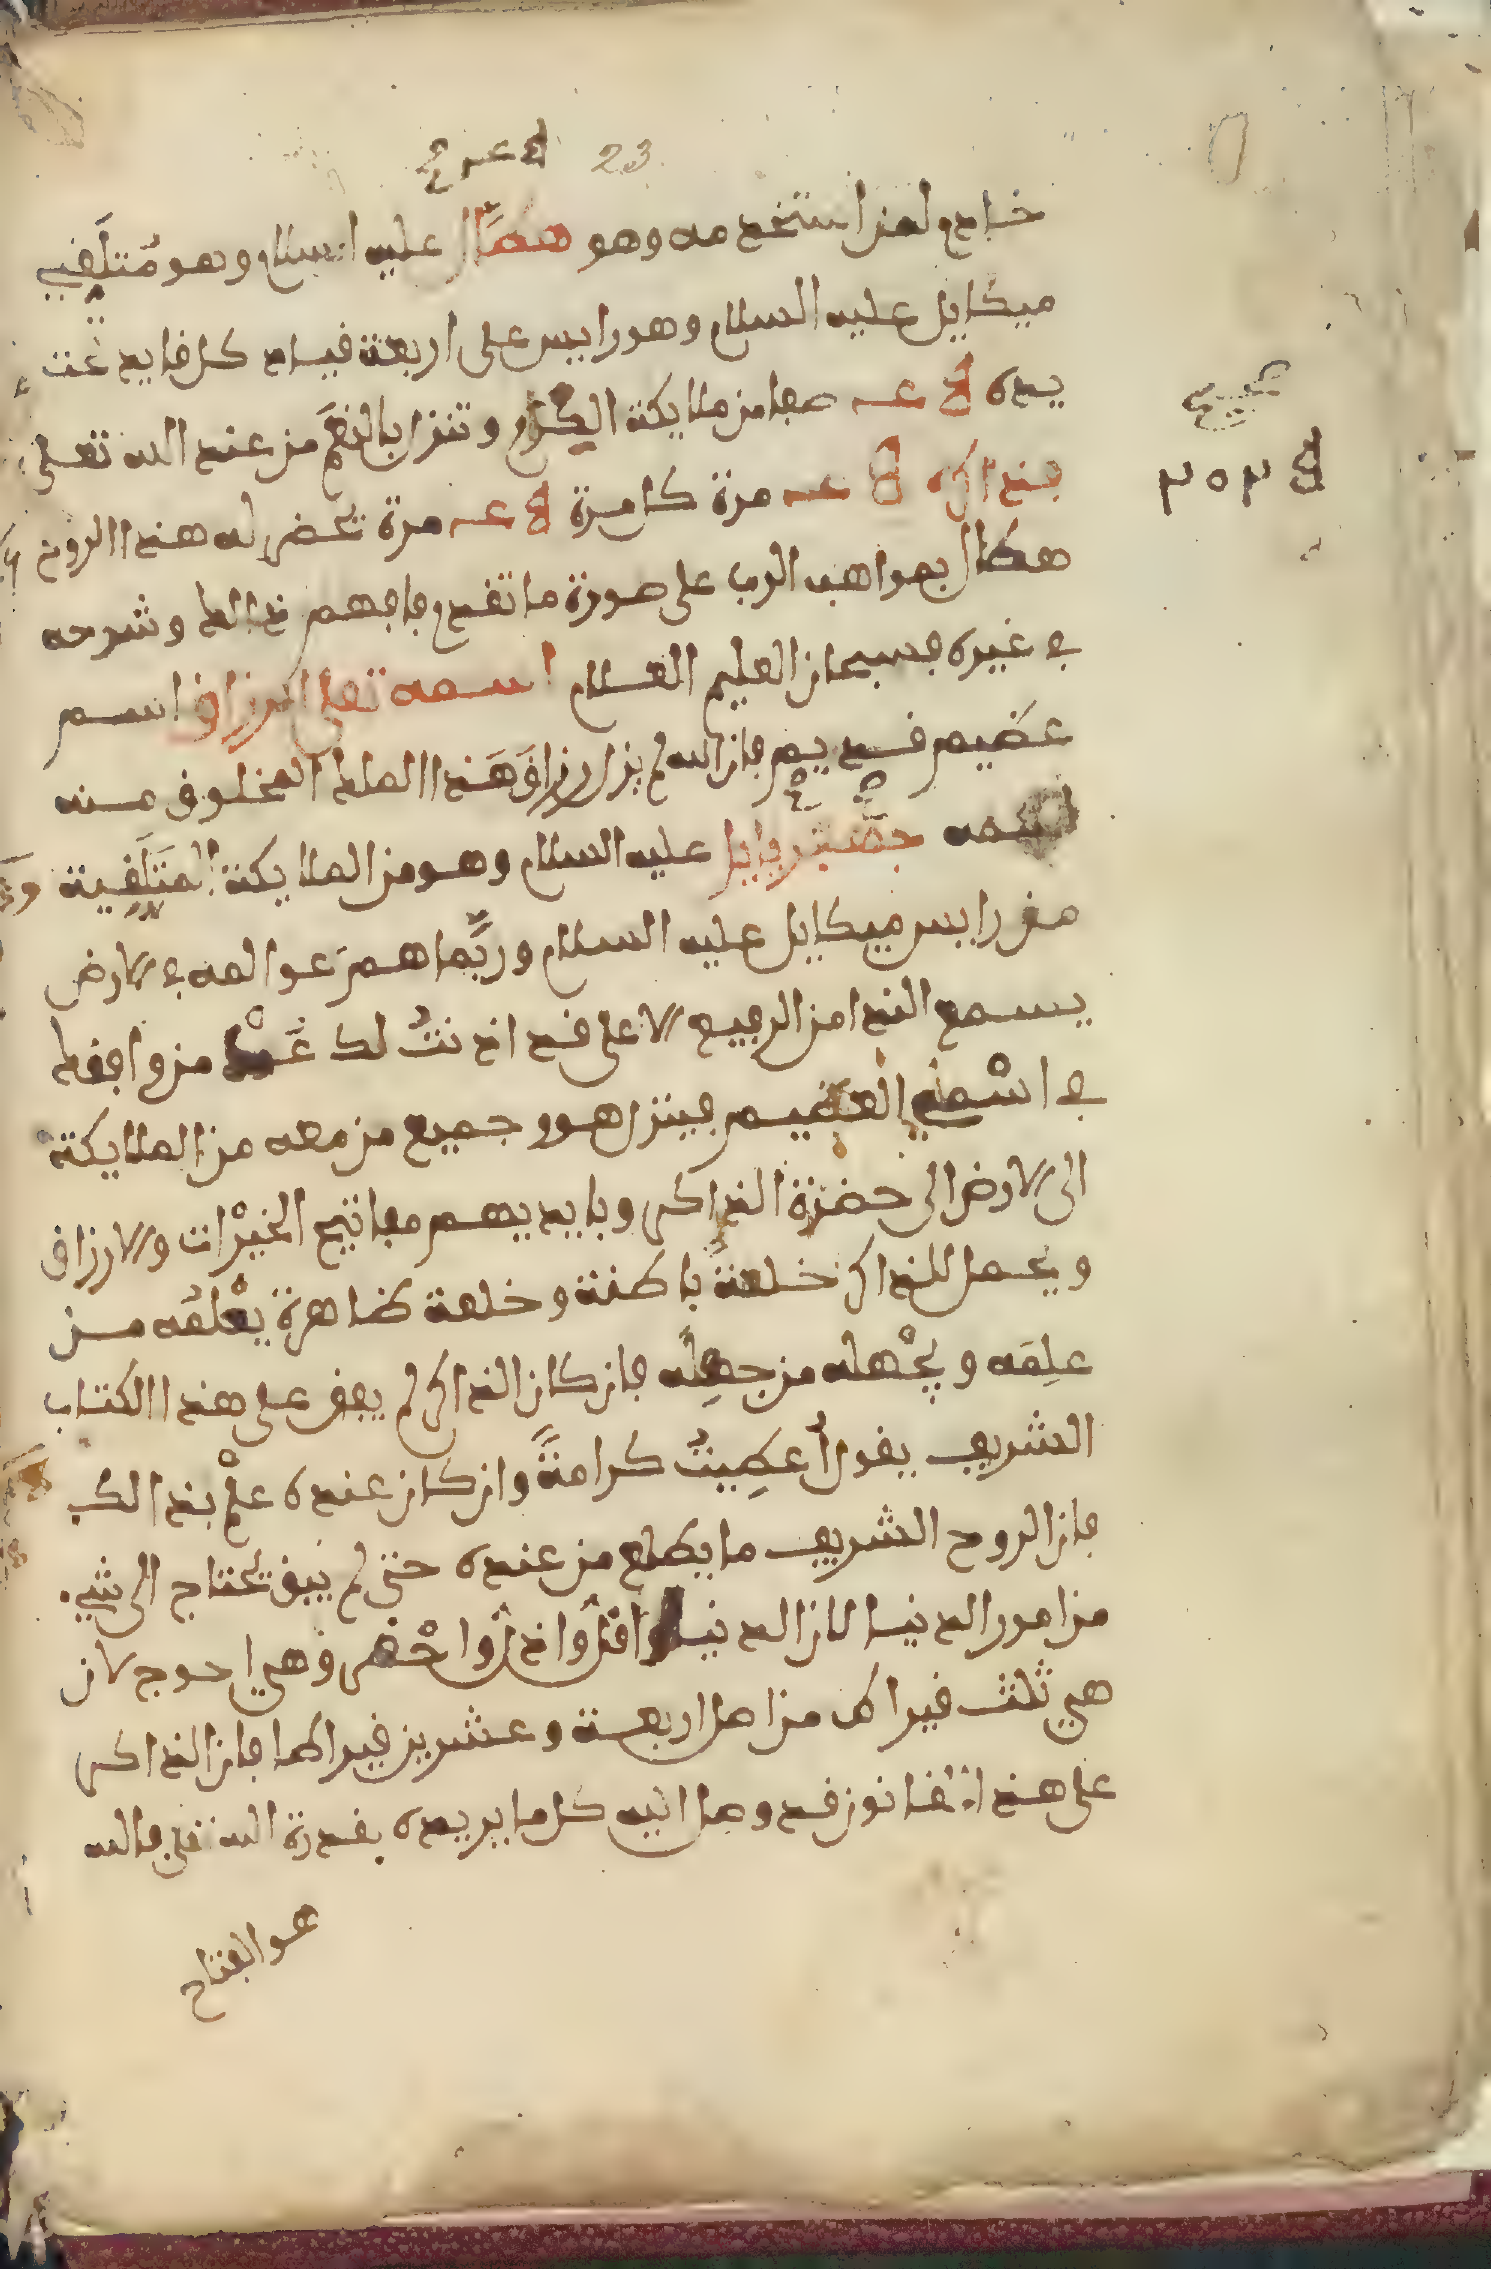 23
خادم لمن استخدمه وهو هطال عليه السلام وهو متلقي
ميكايل عليه السلام وهو رايس على اربعة قياد كل قايد تحت
يده صفا من ملايكة الكرام وتنزل بالنعم من عند الله تعلى
بذاكره مرة كل مرة مرة تحضر له هذا الروح
هطال بمواهب الرب على صورة ما تقدم فافهم ذالك وشرحه
في غيره فسبحان العليم العلام اسمه تعلى الرزاق اسم
عظيم قديم فان الله لم يزل رزاق هذا الملك المخلوق منه
اسمه عليه السلام وهو من الملايكة المتلقية
من رايس ميكايل عليه السلام وربما هم عوالمه في الارض
يسمع الندا من الرفيع الاعلى قد اذنت لك من وافقك
في اسمي العظيم فينزل هو وجميع من معه من الملايكة
الى الارض الى حضرة الذاكر وبايديهم مفاتيح الخيرات والارزاق
ويحمل للذاكر خلعة باطنة وخلعة ظاهرة يعلمه من
علمه ويجهله من جهله فان كان الذاكر لم يقف على هذا الكتاب
الشريف يقول أعطيت كرامة وان كان عنده علم بذالك
فان الروح الشريف ما يطلع من عنده حتى لم يبق تحتاج الى شيء
من امور الدنيا لان الدنيا واقل وهي احوج لان
هي ثلث قيراط من اصل اربعة وعشرين قيراطا فان الذاكر
على هذا القانون قد وصل اليه كل ما يريده بقدرة الله فالله
هو الفتاح